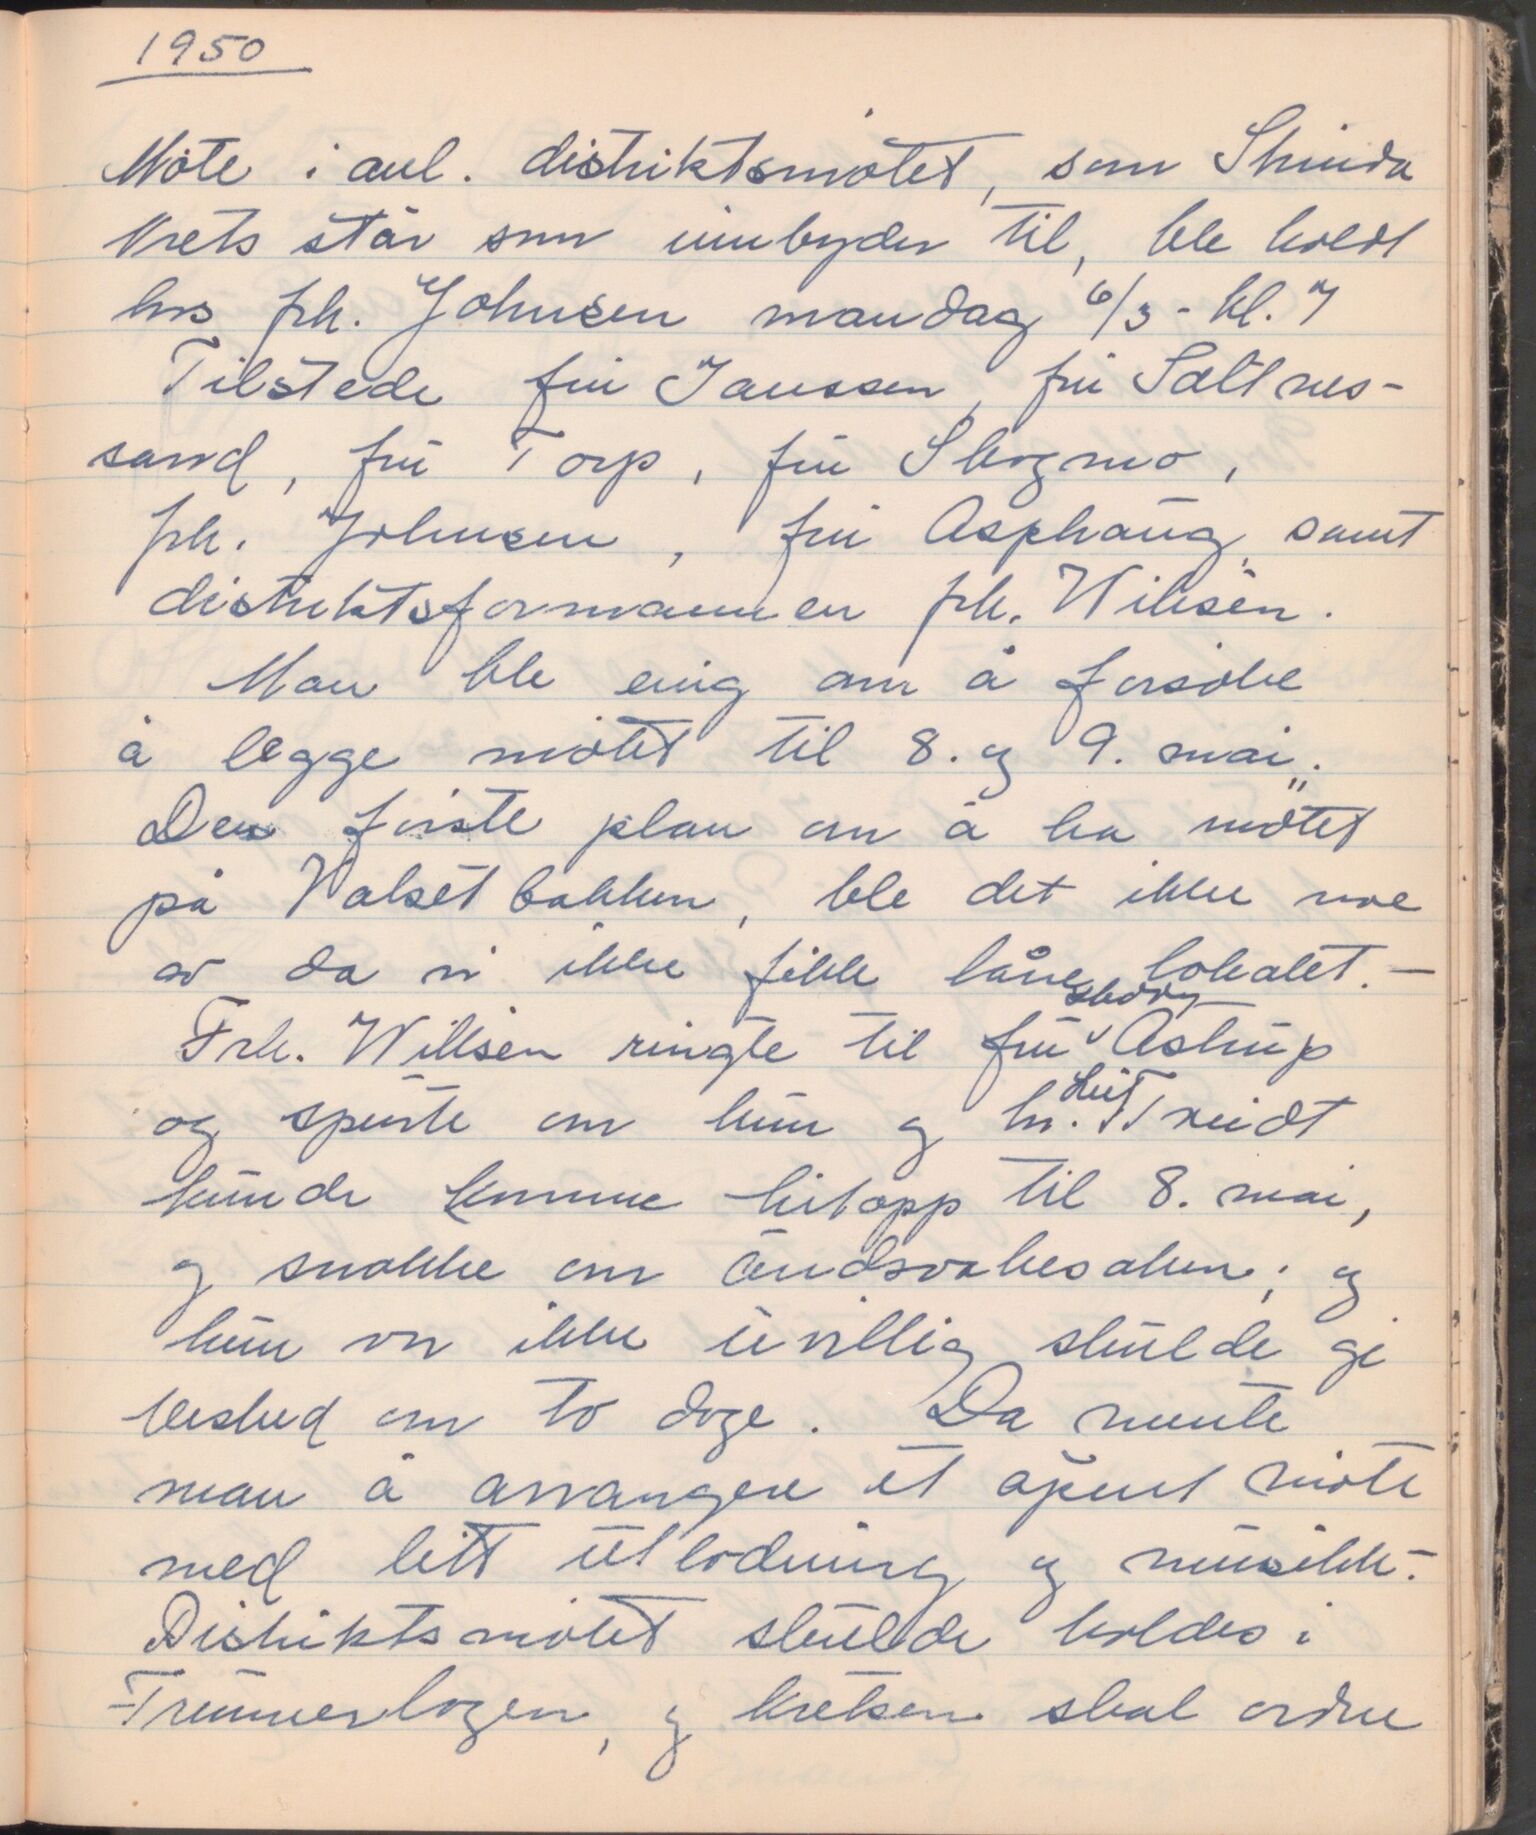 1950
Møte i anl. distriktsmøtet, som Strinda
krets står som innbyder til, ble holdt
hos frk. Johnsen mandag 6/3 - kl. 7
Tilstede fru Janssen, fru Saltnes-
sand, fru Torp, fru Skogmo,
frk. Johnsen, fru Asphaug, samt
distriktsformannen frk. Wiksén.
Man ble enig om å forsøke
å legge møtet til 8. og 9. mai.
Den første plan om å ha møtet
på Valsetbakken, ble det ikke noe
av da vi ikke fikk låne lokalet. -
Frk. Wiksén ringte til fru Astrup
og spurte om hun og hr. Treidt
kunde komme hitopp til 8. mai,
og snakke om åndsvakesaken; og
hun var ikke uvillig skulde gi
beskjed om to dage. Da mente
man å arrangere et åpent møte
med litt utlodning og musikk.
Distriktsmøtet skulde holdes i
Frimurerlogen, og kretsen skal ordne